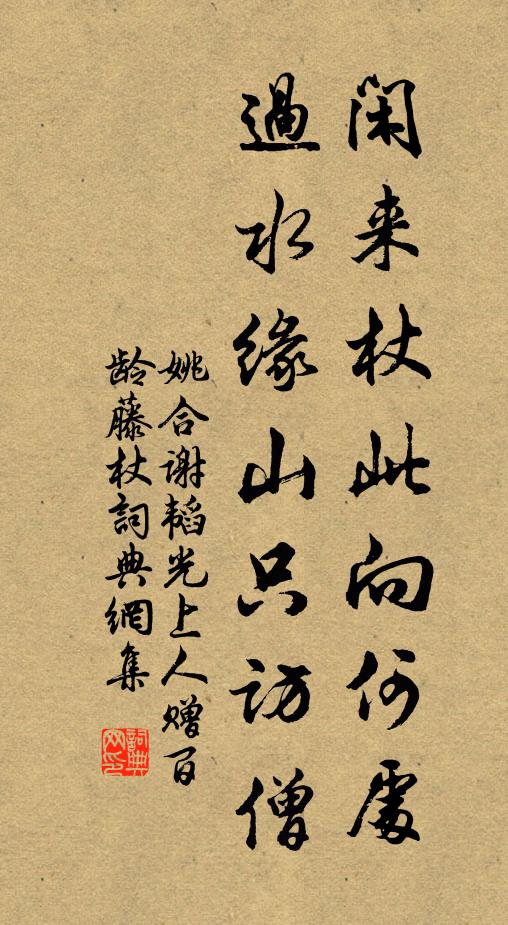 闲来杖此向何處
過水缘山只访僧
姚合谢韬光上人赠百
龄藤杖詞典網集
詞典
网印